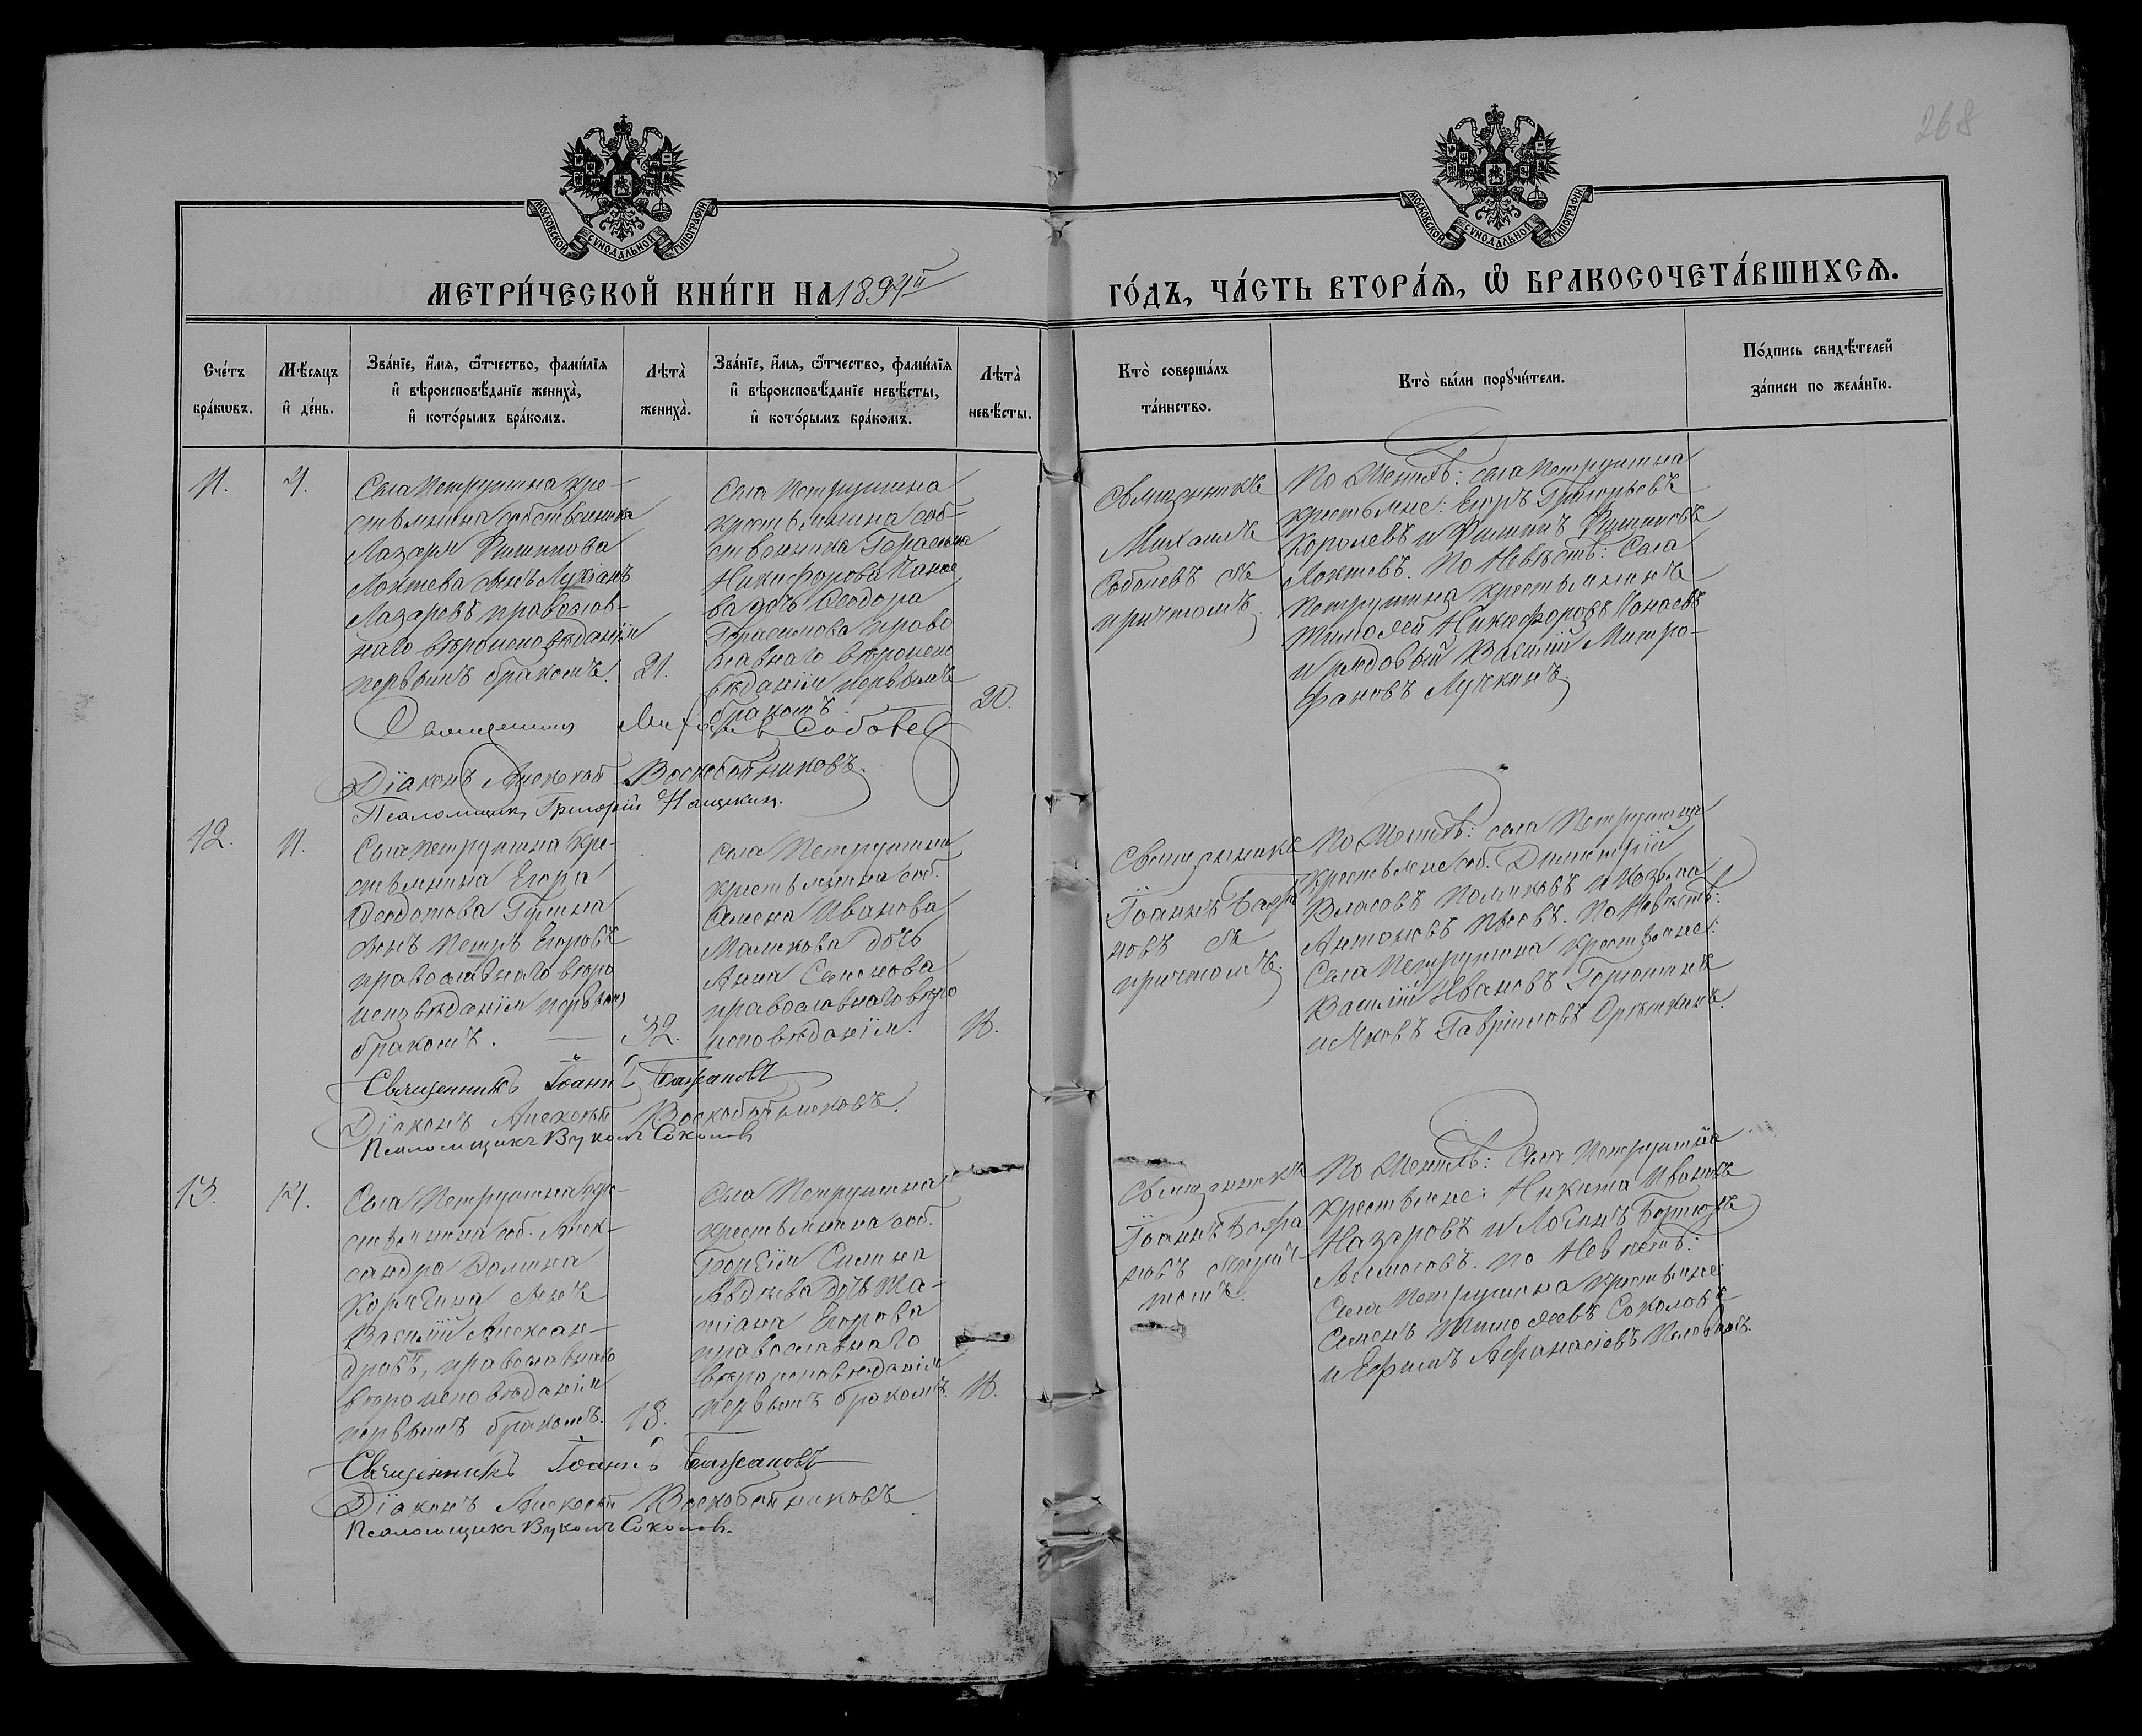 268
МОСКОВСКОЙ СѴНОДАЛЬНОЙ ТИПОГРАФІИ
МОСКОВСКОЙ СѴНОДАЛЬНОЙ ТИПОГРАФІИ
МЕТРИ́ЧЕСКОЙ КНИ́ГИ НА 1894й ГО́ДЪ, ЧА́СТЬ ВТОРА́Ѧ, Ѽ БРАКОСОЧЕТА́ВШИХСѦ.
Сче́тъ бра́кωвъ.
Мѣ́сяцъ и҆ де́нь.
Зва́нїе, и҆́мѧ, ѻ҆́тчество, фами́лїѧ
и҆ вѣроисповѣ́данїе жениха̀,
и҆ кото́рымъ бра́комъ.
Лѣта̀ жениха̀.
Зва́нїе, и҆́мѧ, ѻ҆́тчество, фами́лїѧ
и҆ вѣроисповѣ́данїе невѣ́сты,
и҆ кото́рымъ бра́комъ.
Лѣта̀ невѣ́сты.
Кто̀ соверша́лъ
та́инство.
Кто̀ бы́ли порꙋчи́тели.
По́дпись свидѣ́телей
за́писи по жела́нїю.
11.
4.
Села Петрушина кре-
стьянина собственника
Лазаря Филипова
Локтева сынъ Лукіанъ
Лазаревъ православ-
наго вѣроисповѣданія
первымъ бракомъ.
21.
Села Петрушина
крестьянина соб-
ственника Герасима
Никифорова Панае
ва дочь Ѳеодора
Герасимова право
славнаго вѣроиспо
вѣданія первымъ
бракомъ.
20.
Священникъ
Михаилъ
Соболевъ съ
причтомъ.
По Женихѣ: села Петрушина
крестьяне: Егоръ Григорьевъ
Королевъ и Филипъ Филиповъ
Локтевъ. По Невѣстѣ: Села
Петрушина крестьянинъ
Тимоѳей Никифоровъ Панаевъ
и рядовый Василій Митро-
фановъ Лучкинъ.
Священникъ Михаилъ Соболев
Діаконъ Алексѣй Воскобойниковъ.
Псаломщикъ Григорій
12.
11.
Села Петрушина кре-
стьянина Егора
Ѳеодотова
сынъ Петръ Егоровъ
православнаго вѣро
исповѣданія первымъ
бракомъ.
32.
Села Петрушина
крестьянина соб.
Семена Иванова
Малькова дочь
Анна Семенова
православнаго вѣро
исповѣданія.
Священникъ
Іоаннъ Бажа
новъ съ
причтомъ.
По Женихѣ: села Петрушина
крестьяне соб. Димитрій
Власовъ Поляковъ и Козьма
Антоновъ По Невѣстѣ:
Села Петрушина крестьяне:
Василій Ивановъ Горюшинъ
и Яковъ Гавріиловъ
Священникъ Іоаннъ Бажановъ
Діаконъ Алексѣй Воскобойниковъ.
Псаломщикъ Вуколъ Соколовъ
13.
Села Петрушина кре-
стьянина соб. Алек-
сандра
сынъ
Василій Алексан-
дровъ, православнаго
вѣроисповѣданія
первымъ бракомъ.
18.
Села Петрушина
крестьянина соб.
Георгія
Авдѣева дочь Та-
тіана Егорова
православнаго
вѣроисповѣданія
первымъ бракомъ.
Священникъ
Іоаннъ Бажа
новъ съ прич-
томъ.
По Женихѣ: Села Петрушина
крестьяне: Никита Ивановъ
Назаровъ и
По Невѣстѣ:
Села Петрушина крестьяне:
Семенъ Тимоѳеевъ Соколовъ
и Ефимъ Афанасіевъ
Священникъ Іоаннъ Бажановъ
Діаконъ Алексѣй Воскобойниковъ
Псаломщикъ Вуколъ Соколовъ.